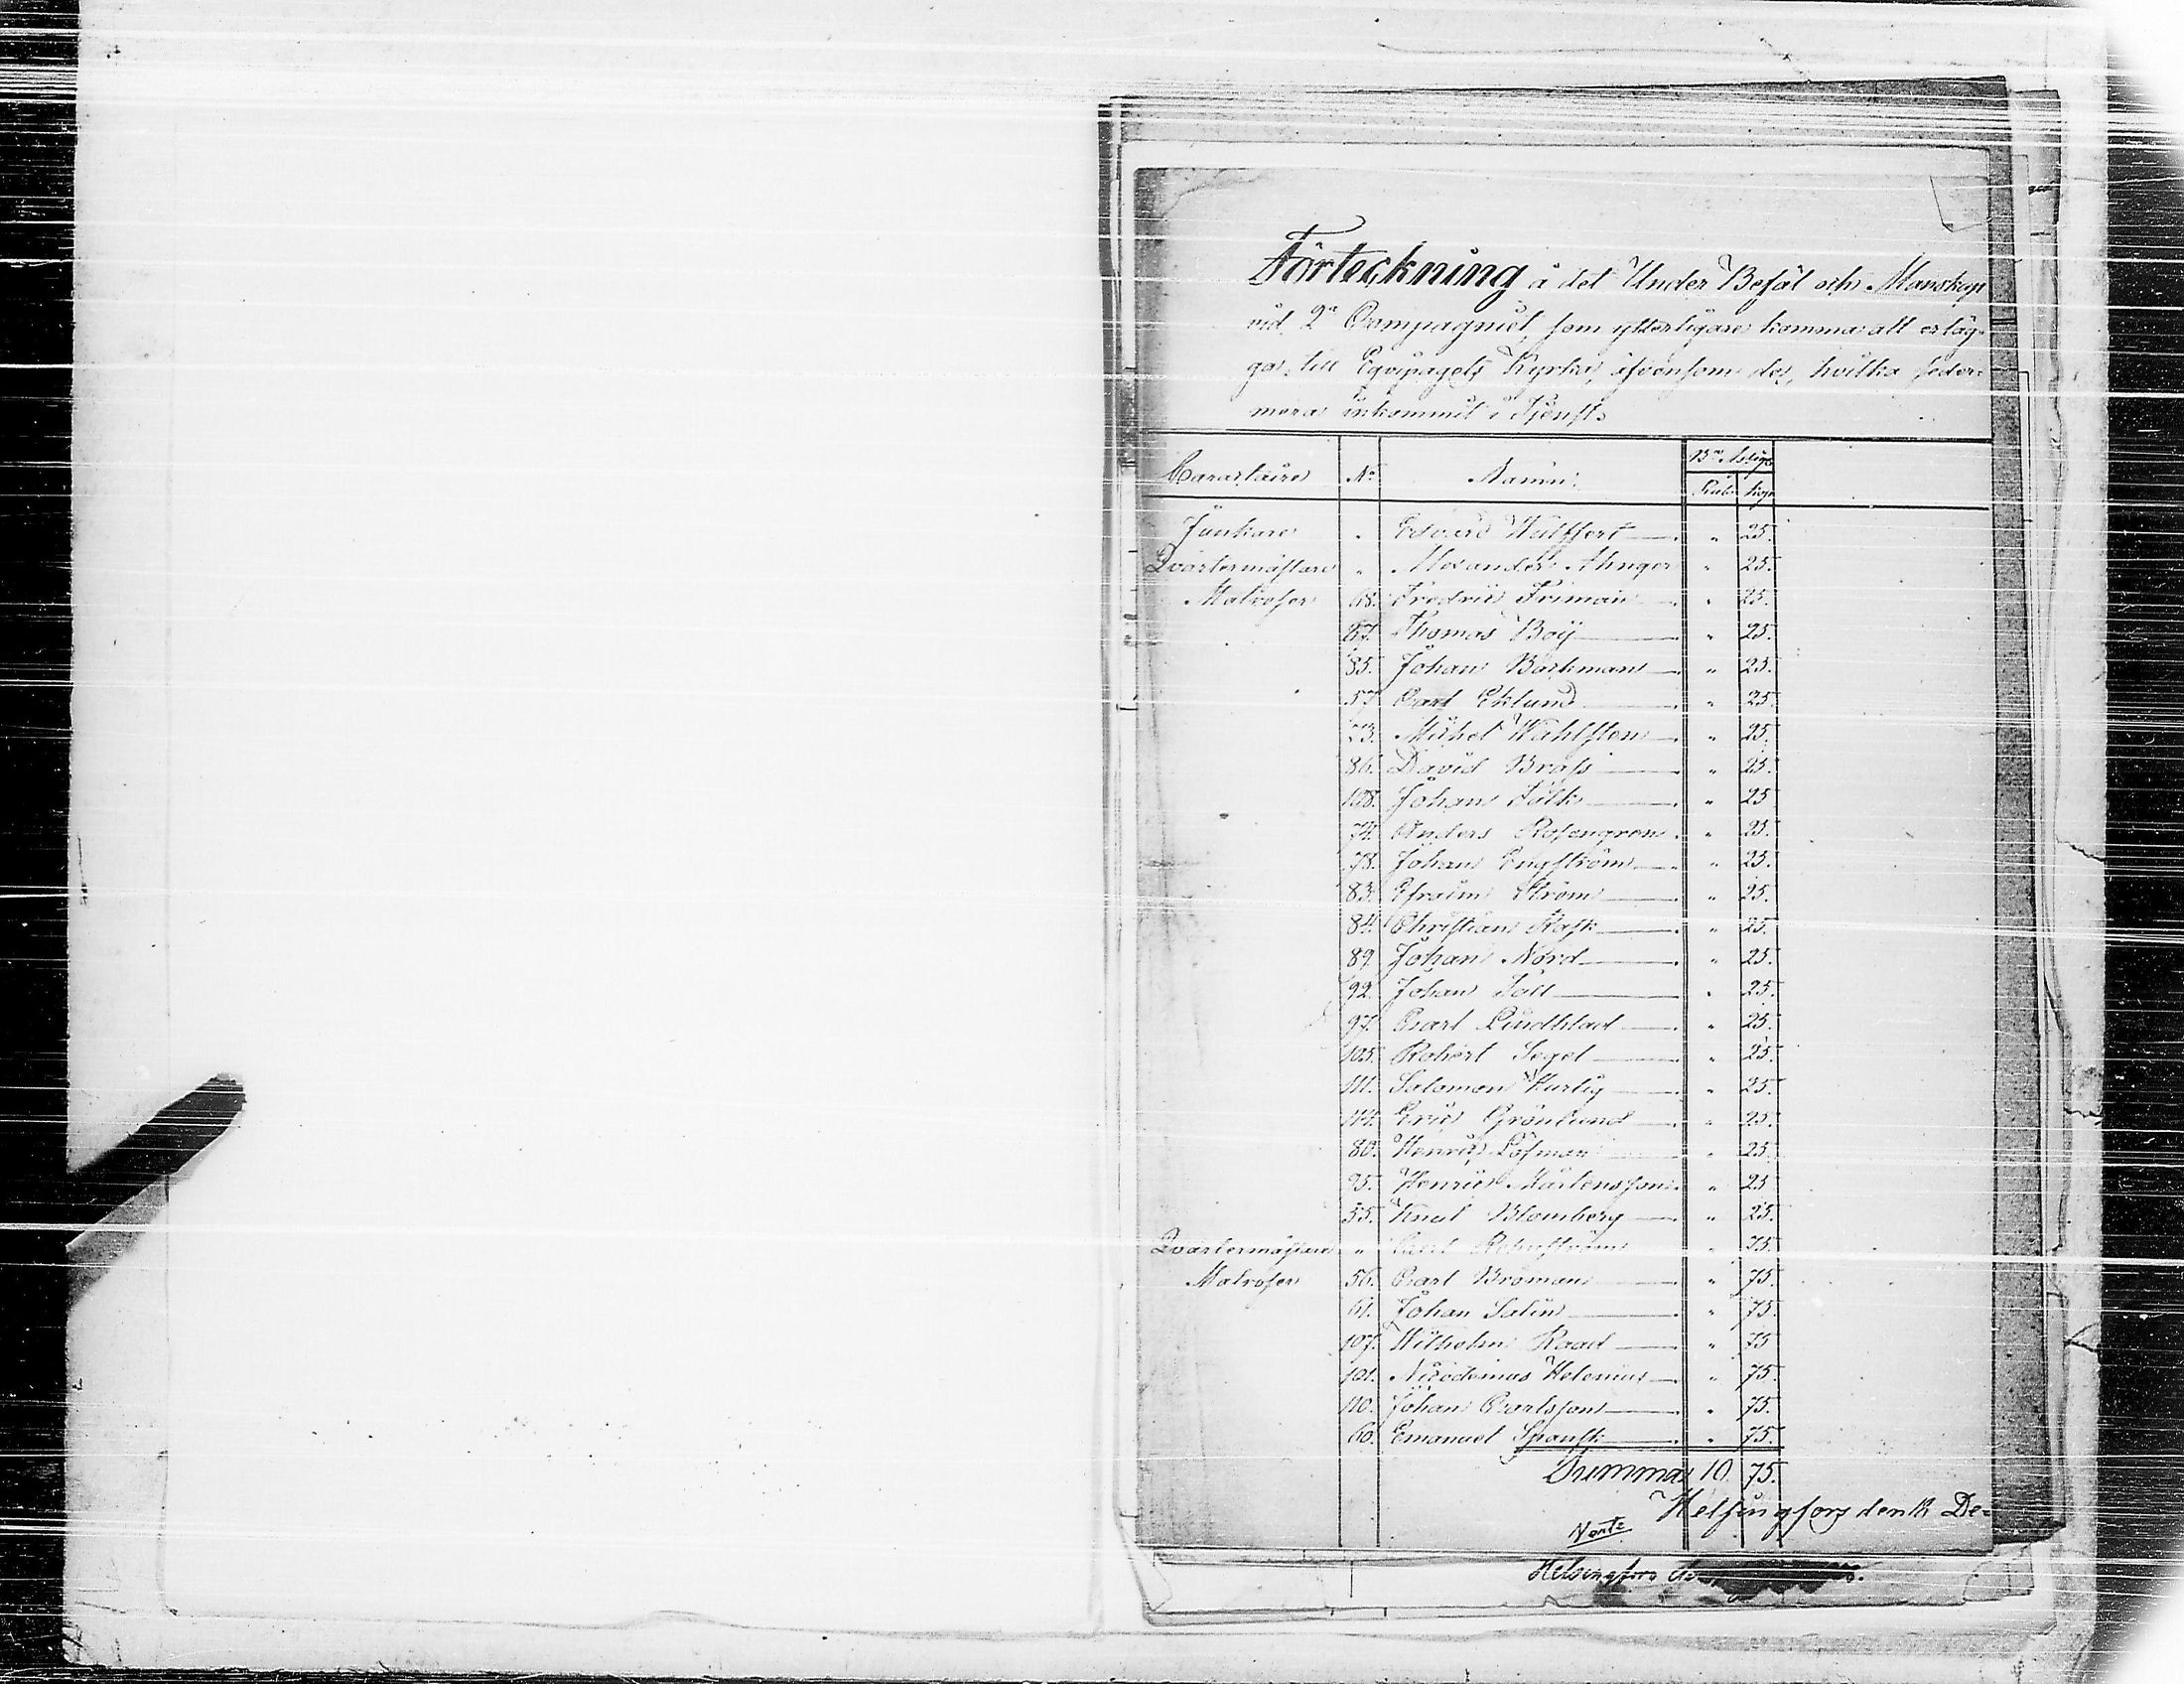 Förteckning å det Under Befäl och Manskap
vid 2a Compagniet, som ytterligare komma att erläg-
ga till Eqvipagets Kyrka, äfvensom de, hvilka seder-
mera inkommit i Tjenst.
Caractaire No Namn Bco Assign
Rub. kop.
Junkare " Edvard Wulffert " 25.
Qvartermästare " Alexander Ahnger " 25.
Matroser 68. Fredric Friman " 25.
67. Thomas Boij " 25.
85. Johan Barkman " 25.
57 Carl Eklund " 25.
73. Michel Wahlsten " 25.
86. David Brass " 25.
108. Johan Falk " 25
74. Anders Rosengren " 25.
78. Johan Engström " 25.
83. Efraim Ström " 25.
84. Christian Rask " 25.
89. Johan Nord " 25.
92. Johan Tall " 25.
97. Carl Lindblad " 25.
105. Robert Segel " 25.
111. Salomon Hurtig " 25
114. Eric Grönlund " 25.
80. Henric Löfman " 25.
95. Henric Mårtensson " 25
55. Knut Blomberg " 25.
Qvartermästare " Carl " 75.
Matroser 56. Carl Broman " 75.
61. Johan Salin " 75.
107. Wilhelm Raad " 75
101. Nicodemus Helenius " 75.
110. Johan Carlsson " 75.
60. Emanuel Spansk " 75.
Summa 10. 75.
Helsingfors den 12 De-
Verte
Helsingfors